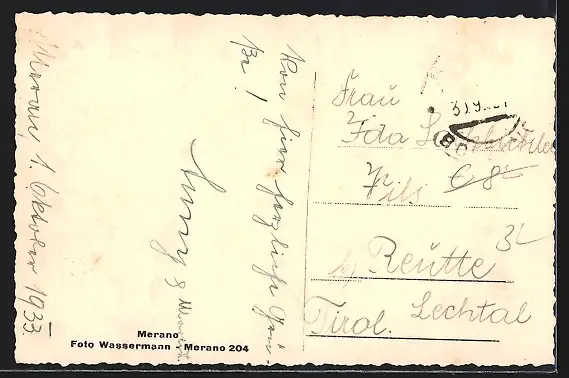 Meran, 1. Oktober 1933.
Von hier herzliche Grüs-
se!
Merano
Foto Wassermann - Merano 204
Frau
Ida
Pils € 8,-
b/ Reutte 32
Tirol. Lechtal